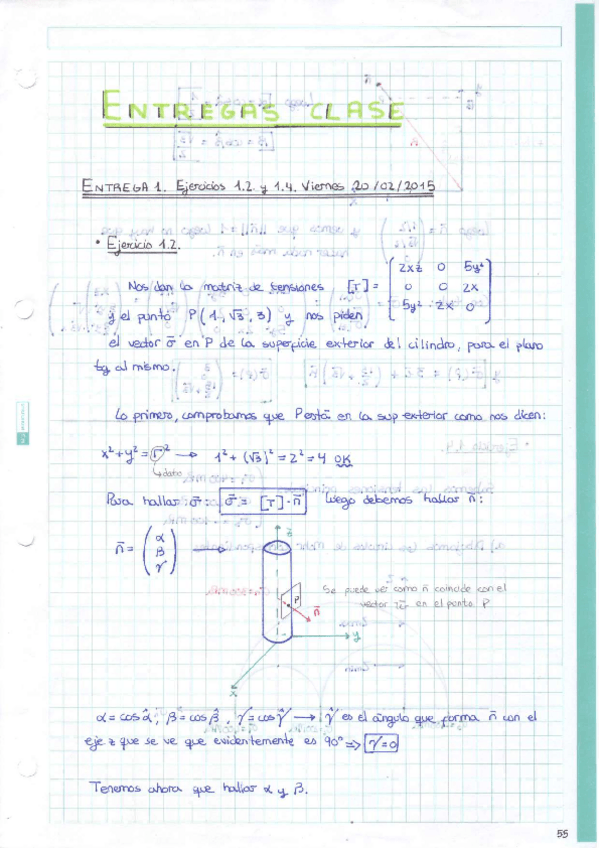 ENTREGAS CLASE
ENTREGA 1. Ejercicios 1.2. y 1.4. Viernes 20/02/2015
• Ejercicio 1.2.
Nos dan la matriz de tensiones [T] = ( 2xz 0 5y² ; 0 0 2x ; 5y² 2x 0 )
y el punto P(1, √3, 3) y nos piden
el vector σ⃗ en P de la superficie exterior del cilindro, para el plano
tg al mismo.
Lo primero, comprobamos que P está en la sup exterior como nos dicen:
x² + y² = r² → 1² + (√3)² = 2² = 4 OK
↳ dato
Para hallar σ⃗: σ⃗ = [T]·n⃗ luego debemos hallar n⃗:
n⃗ = ( α ; β ; γ ) →
z
P
n⃗
y
x
Se puede ver como n⃗ coincide con el
en el punto P
α = cos α̂, β = cos β̂, γ = cos γ̂ → γ̂ es el ángulo que forma n⃗ con el
eje z que se ve que evidentemente es 90° ⇒ γ = 0
Tenemos ahora que hallar α y β.
55